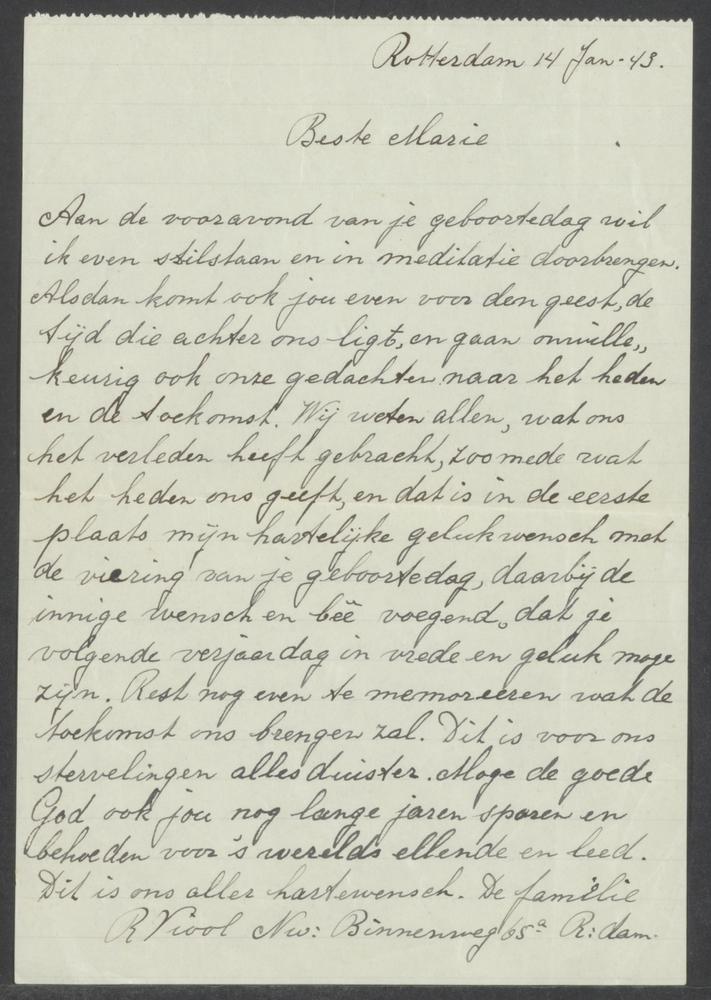 Rotterdam 14 Jan-43.
Beste Marie
Aan de vooravond van je geboortedag wil
ik even stilstaan en in meditatie doorbrengen.
Alsdan komt ook jou even voor den geest, de
tijd die achter ons ligt, en gaan onwille„
keurig ook onze gedachten naar het heden
en de toekomst. Wij weten allen, wat ons
het verleden heeft gebracht, zoomede wat
het heden ons geeft, en dat is in de eerste
plaats mijn hartelijke gelukwensch met
de viering van je geboortedag, daarbij de
innige wensch en beê voegend, dat je
volgende verjaardag in vrede en geluk moge
zijn. Rest nog even te memoreeren wat de
toekomst ons brengen zal. Dit is voor ons
stervelingen alles duister. Moge de goede
God ook jou nog lange jaren sparen en
behoeden voor 's werelds ellende en leed.
Dit is ons aller hartewensch. De familie
R Viool Nw: Binnenweg 65ª R:dam.